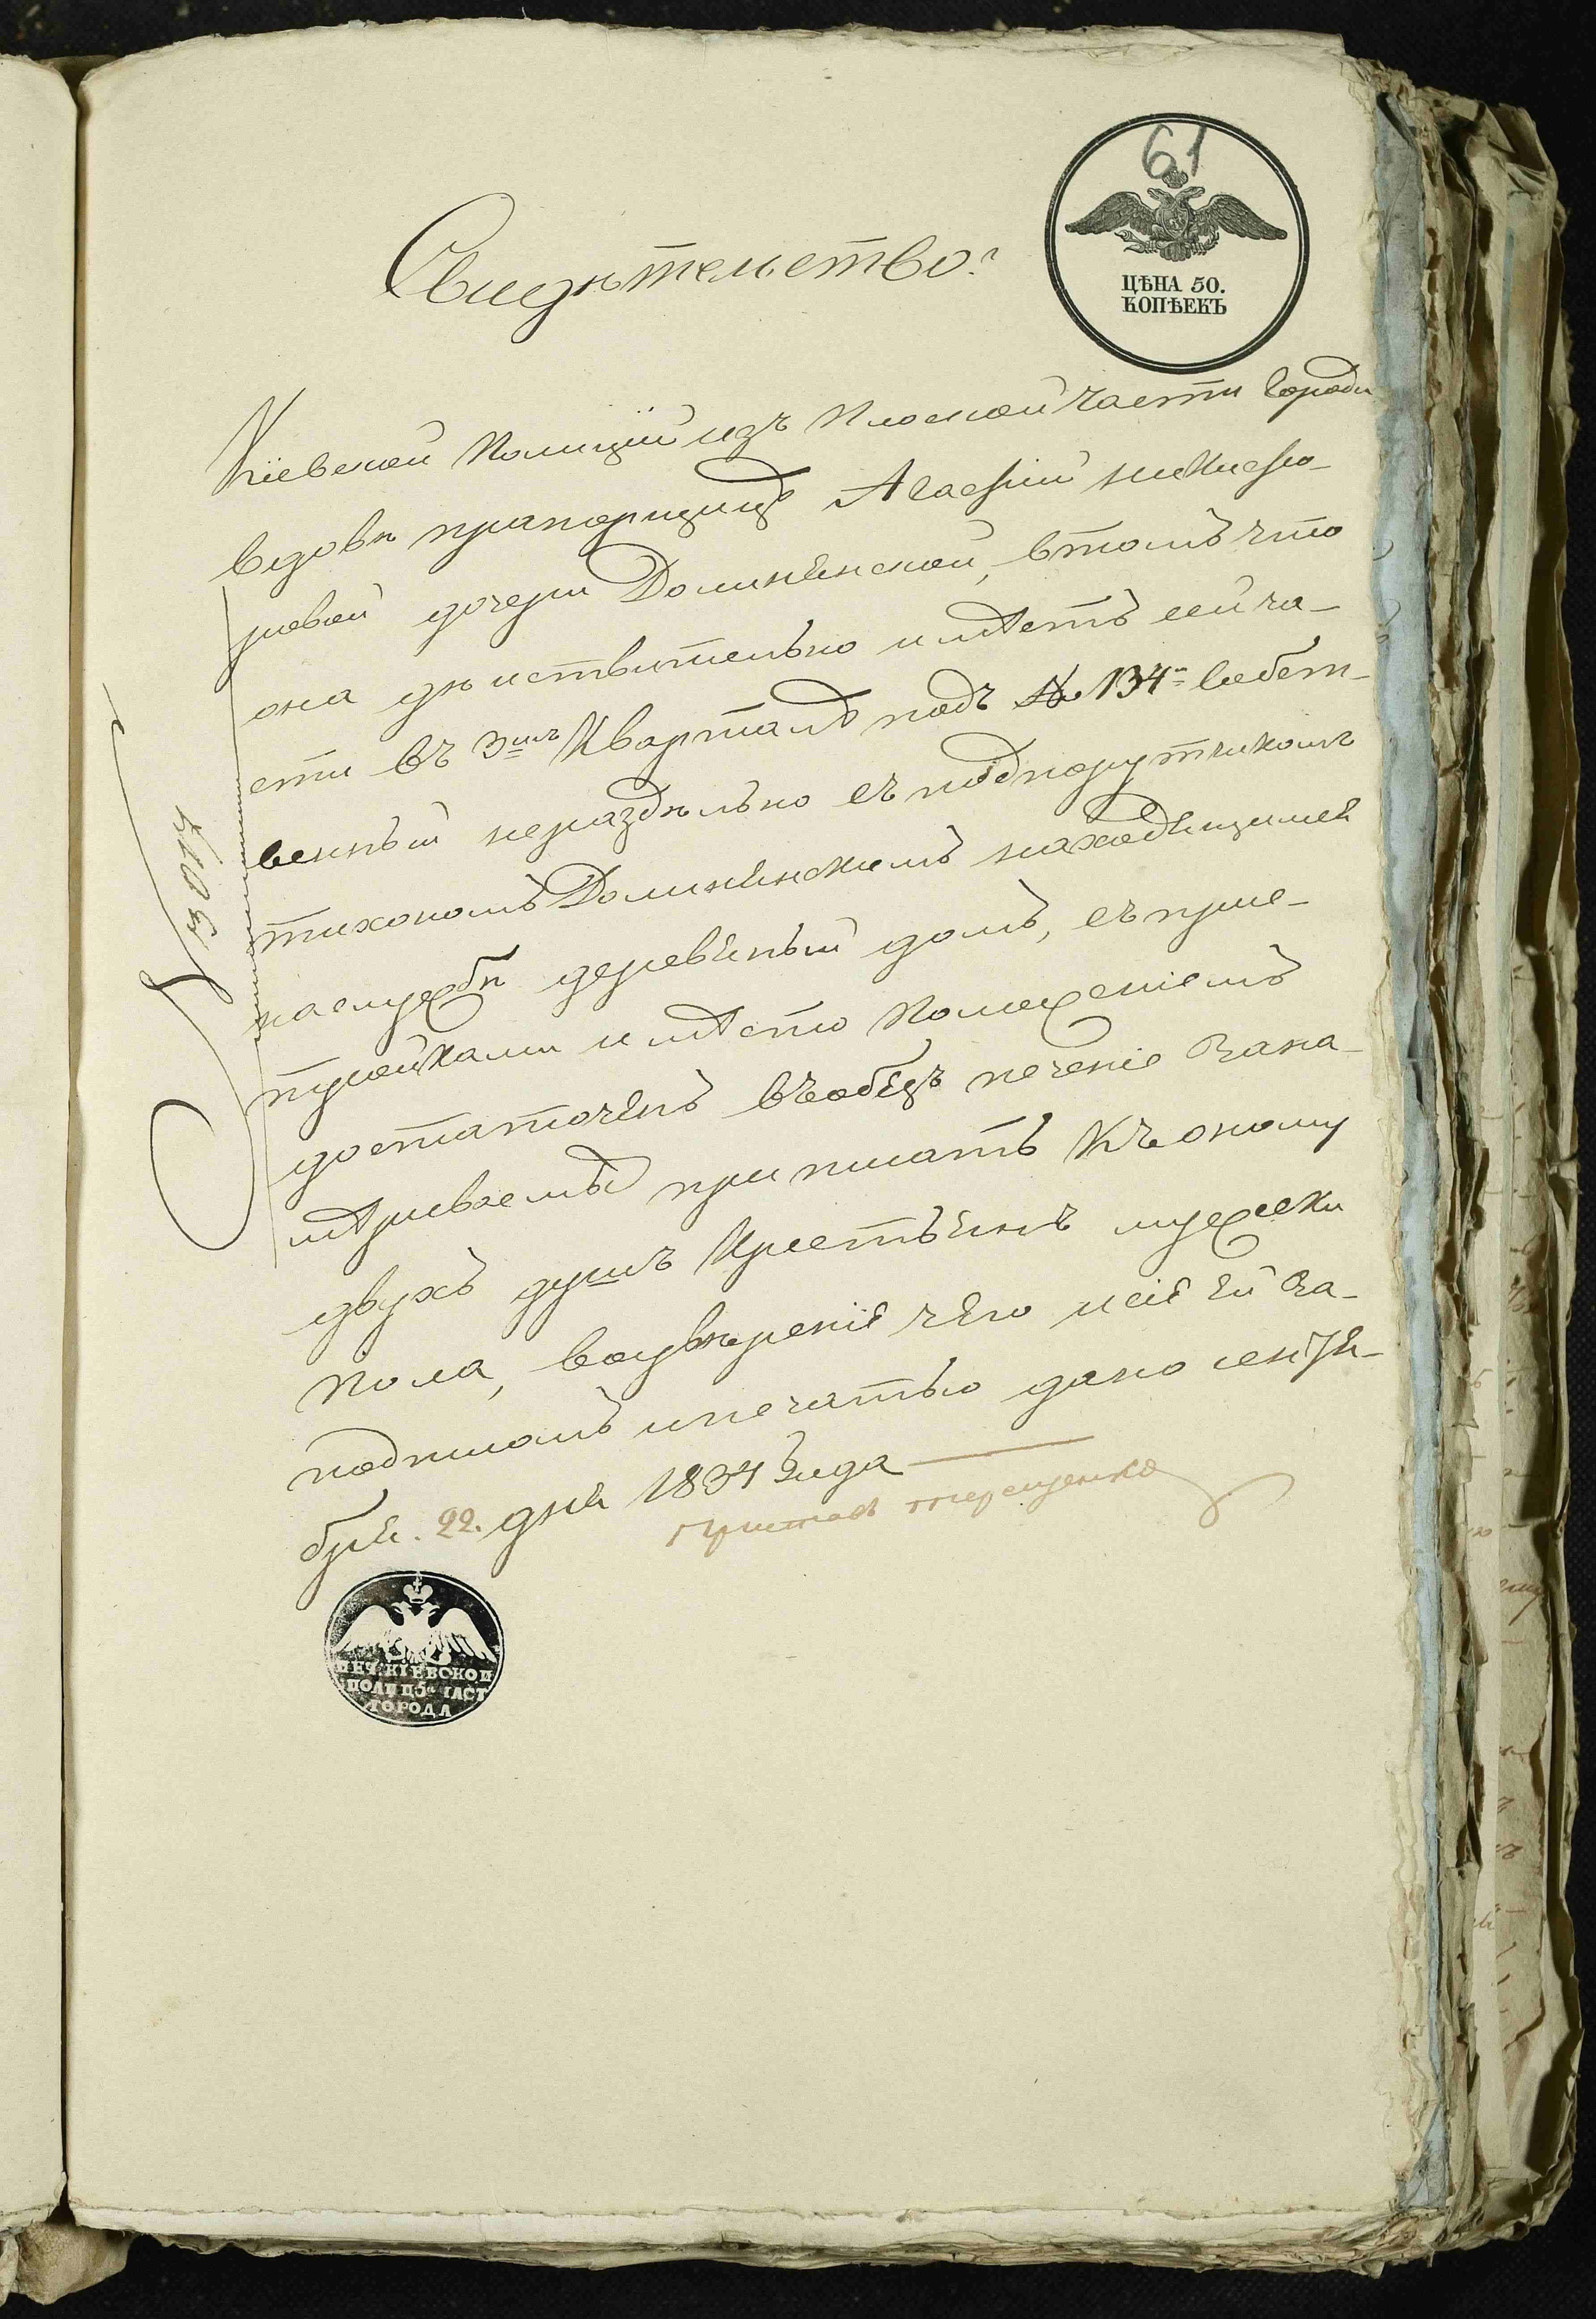 61
ЦѢНА 50.
КОПѢЕКЪ
Свидѣтельство.
Кіевской Полиціи изъ Плоской части Города
вдовѣ прапорщицѣ Агафіи никифо-
ровой дочери Долинянской, втомъ что
она дѣйствительно имѣетъ сей ча-
сти въ 3мъ Кварталѣ подъ № 134м собст-
венный нераздѣльно съ подпорутчикомъ
тихономъ Долинянскимъ находящимся
наслужбѣ деревяный домъ, съ при-
стройками и мѣсто Помещеніемъ
достаточенъ въобез печеніе Зана-
мѣриваемыѣ приписать Къоному
двухъ душъ Крестьянъ мужеска
пола, воувѣреніе чего и сіе Ей За-
подписомъ ипечатью дано сентя-
бря. 22. дня 1834 Года
Приставъ Терещенко
ПЕЧ: КІЕВСКОЙ
ПОЛИЦ: 5й ЧАСТ
ГОРОДА
№ 3017